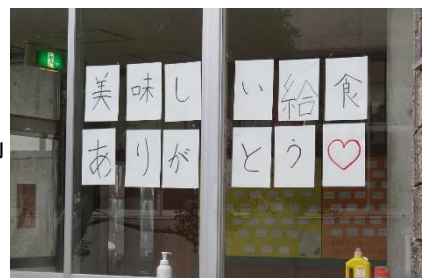 美味しい給食
ありがとう♡